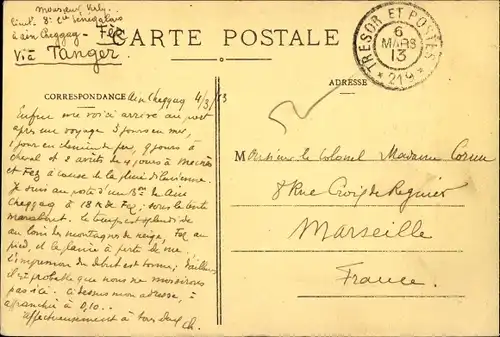 Monsieur
Lieut. 8e Cie Sénégalais
à Ain Cheggag - Fez
Via Tanger.
CARTE POSTALE
TRESOR ET POSTES
6
MARS
13
* 219 *
CORRESPONDANCE
ADRESSE
Ain Cheggag 4/3/13
Enfin me voici arrivé au port
après un voyage 3 jours en mer,
1 jour en chemin de fer, 9 jours à
cheval et 2 arrêts de 4 jours à
et Fez à cause de la pluie diluvienne.
Je suis au poste d'un Bon de Ain
Cheggag à 18 K de Fez; sous la tente
marabout. Le temps est splendide
au loin les montagnes de neige, Fez au
pied, et la plaine à perte de vue.
L'impression du début est bonne; d'ailleurs
il est probable que nous ne moisirons
pas ici. Ci dessus mon adresse,
affranchie à 0,10..
affectueusement à tous deux
Monsieur le Colonel Madame
8 Rue Croix de Regnier
Marseille
France.